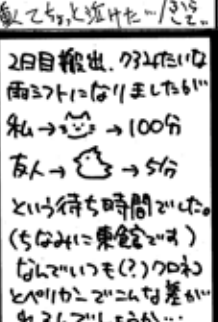 てちょっと泣けた…
2日目搬出、クロみたいな
雨ミフトになりましたが
私→ →100分
友人→ →5分
という待ち時間でした。
(ちなみに東館です)
なんでいつも(?)クロネコ
とペリカンでこんな差が